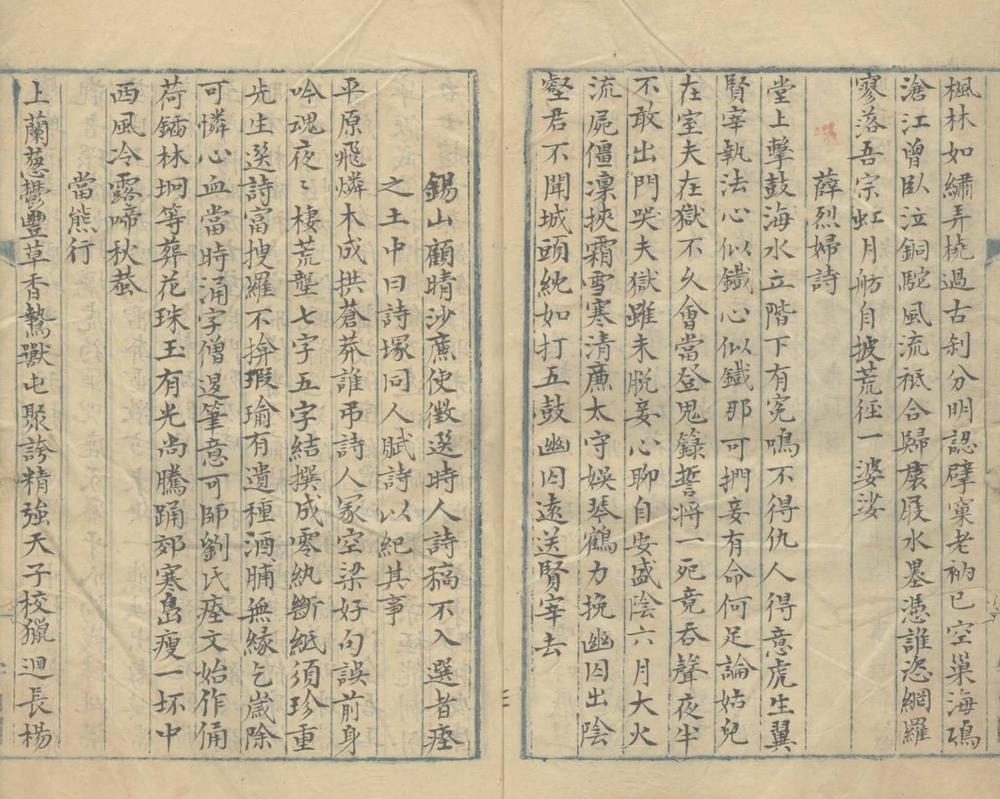 楓林如繡弄橈過古刹分明認擘窠老衲已空巢海鳴
滄江曾臥泣銅駝風流祇合歸裙屐水墨憑誰恣網羅
寥落吾宗虹月舫自披荒徑一婆娑
薛烈婦詩
堂上擊鼓海水立階下有冤鳴不得仇人得意虎生翼
賢宰執法心似鐵心似鐵那可捫妾有命何足論姑兒
在室夫在獄不久會當登鬼錄誓將一死竟吞聲夜半
不敢出門哭夫獄雖未脫妾心聊自安盛陰六月大火
流屍僵凜挾霜雪寒清廉太守娛琴鶴力挽幽囚出陰
壑君不聞城頭統如打五鼓幽囚遠送賢宰去
錫山顧晴沙廉使徵選時人詩稿不入選者瘞
之土中曰詩塚同人賦詩以紀其事
平原飛燐木成拱蒼莽誰弔詩人冢空梁好句誤前身
吟魂夜〻棲荒壟七字五字結撰成零紈斷紙須珍重
先生選詩富搜羅不揜瑕瑜有遺種酒脯無緣乞歲除
可憐心血當時涌字僧退筆意可師劉氏瘞文始作俑
荷鍤林坰等葬花珠玉有光尚騰踊郊寒島瘦一抔中
西風冷露啼秋蛩
當熊行
上蘭蔥鬱豐草香鷙獸屯聚誇精強天子校獵迴長楊